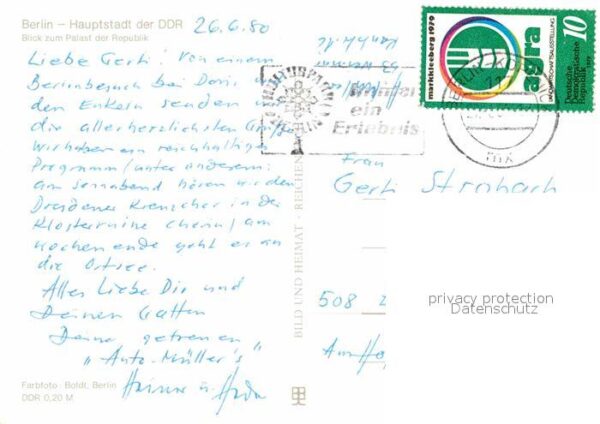 Berlin – Hauptstadt der DDR
Blick zum Palast der Republik
26.6.80
Liebe Gerti! Von einem
Berlinbesuch bei Doris
den Enkeln senden wir
die allerherzlichsten Grüße
Wir haben ein reichhaltiges
Programm/unter anderem:
am Sonnabend hören wir den
Dresdener Kreuzchor in der
Klosterruine Chorin/am
Wochenende geht es an
die Ostsee.
Alles Liebe Dir und
Deinem Gatten
Deine getreuen
"Auto-Müller's"
Heiner u.
Farbfoto: Boldt, Berlin
DDR 0,20 M
BILD UND HEIMAT · REICHENBACH
53 Weimar
ein
Erlebnis
markkleeberg 1979
agra
LANDWIRTSCHAFTSAUSSTELLUNG
10
Deutsche
Demokratische
Republik
1979
Frau
Gerti Strobach
508
privacy protection
Datenschutz